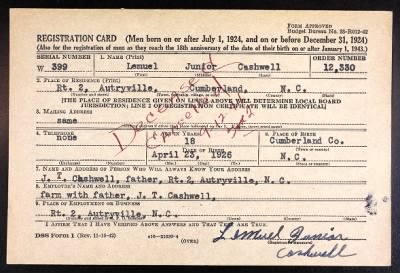 FORM APPROVED
Budget Bureau No. 33-R012-42
REGISTRATION CARD (Men born on or after July 1, 1924, and on or before December 31, 1924)
(Also for the registration of men as they reach the 18th anniversary of the date of their birth on or after January 1, 1943.)
SERIAL NUMBER 1. NAME (Print) ORDER NUMBER
W 399 Lemuel Junior Cashwell 12,330
2. PLACE OF RESIDENCE (Print)
Rt. 2, Autryville, Cumberland, N. C.
[THE PLACE OF RESIDENCE GIVEN ON LINE 2 ABOVE WILL DETERMINE LOCAL BOARD
JURISDICTION; LINE 2 OF REGISTRATION CERTIFICATE WILL BE IDENTICAL]
3. MAILING ADDRESS
same
Deceased
Cancelled
4. TELEPHONE 5. AGE IN YEARS 6. PLACE OF BIRTH
none 18 Cumberland Co.
DATE OF BIRTH
April 23, 1926 N.C.
7. NAME AND ADDRESS OF PERSON WHO WILL ALWAYS KNOW YOUR ADDRESS
J. T. Cashwell, father, Rt.2, Autryville, N. C.
8. EMPLOYER'S NAME AND ADDRESS
farm with father, J. T. Cashwell,
9. PLACE OF EMPLOYMENT OR BUSINESS
Rt. 2, Autryville, N.C.
I AFFIRM THAT I HAVE VERIFIED ABOVE ANSWERS AND THAT THEY ARE TRUE.
DSS Form 1 (Rev. 11-16-42) (OVER)
Lemuel Junior
Cashwell